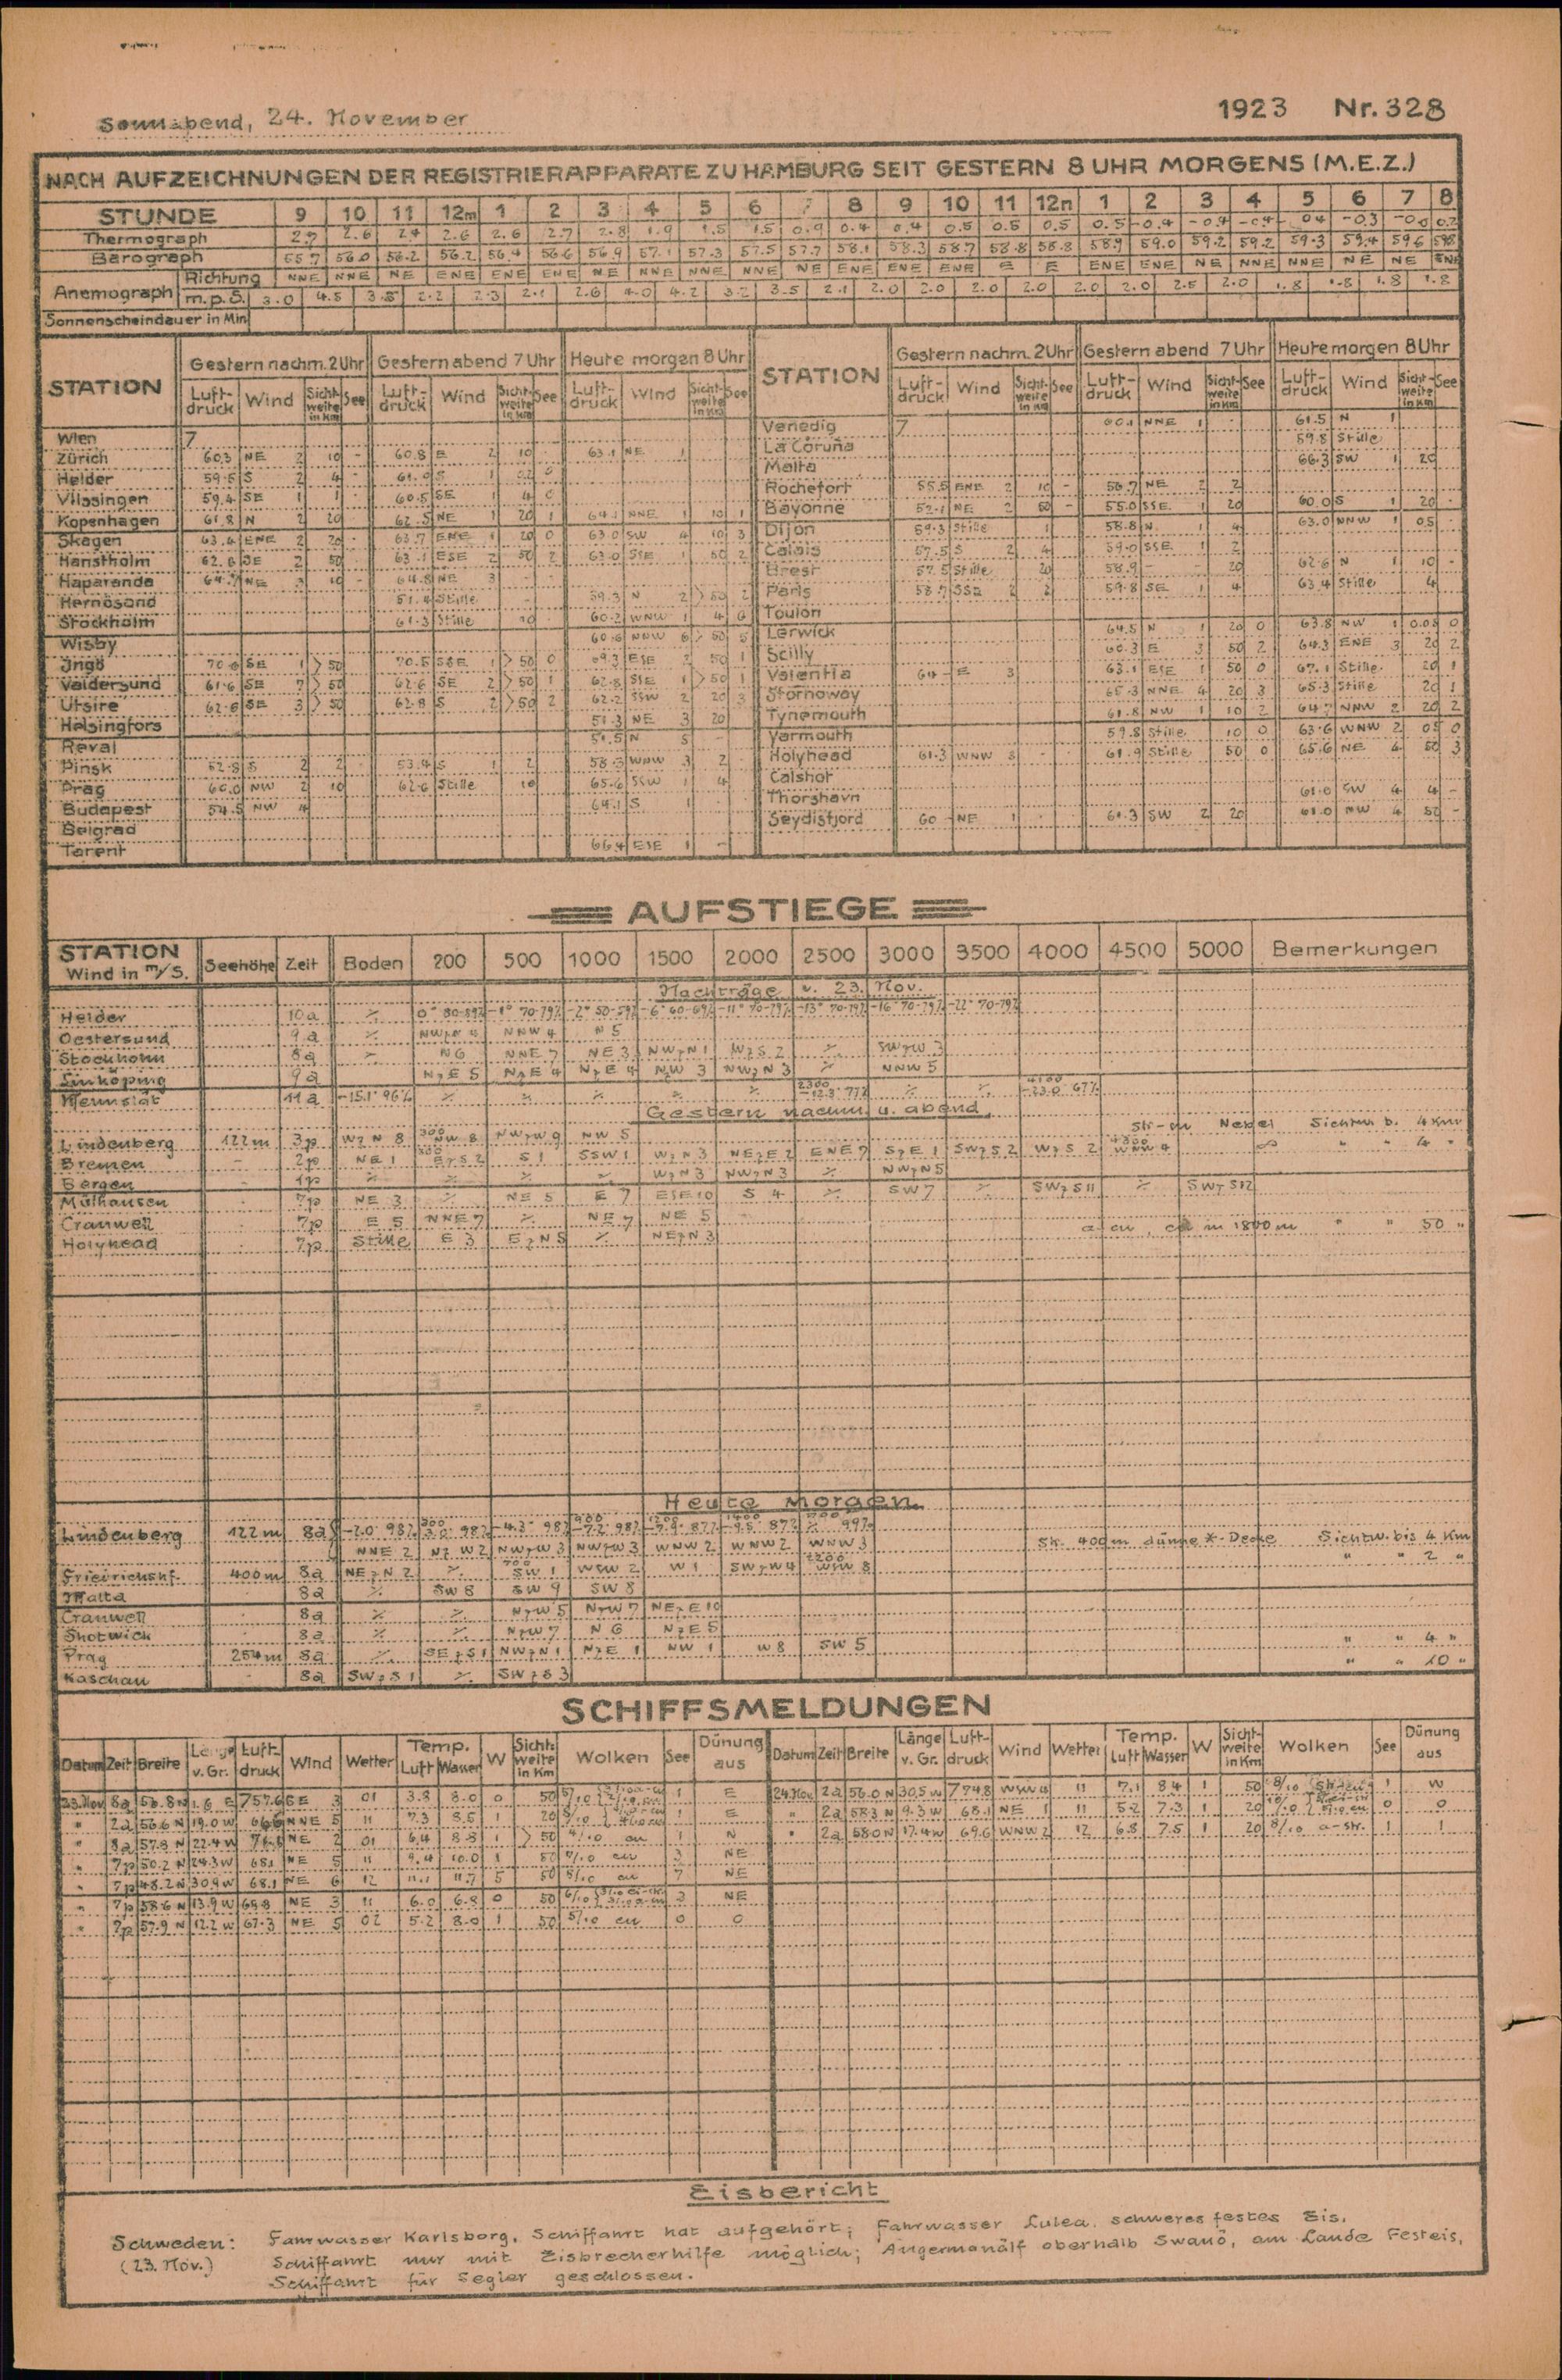 Sonnabend, 24. November 1923 Nr. 328
NACH AUFZEICHNUNGEN DER REGISTRIERAPPARATE ZU HAMBURG SEIT GESTERN 8 UHR MORGENS (M.E.Z.)
STUNDE 9 10 11 12m 1 2 3 4 5 6 7 8 9 10 11 12n 1 2 3 4 5 6 7 8
Thermograph 2.7 2.6 2.4 2.6 2.6 2.7 2.8 1.9 1.5 1.5 0.9 0.4 0.4 0.5 0.5 0.5 0.5 -0.4 -0.4 -0.4 -0.3
Barograph 55.7 56.0 56.2 56.2 56.4 56.6 56.9 57.1 57.3 57.5 57.7 58.1 58.3 58.7 58.8 58.8 58.9 59.0 59.2 59.2 59.3 59.4 59.6
Anemograph Richtung NNE NNE NE ENE ENE ENE NE NNE NNE NNE NE ENE ENE ENE E E ENE ENE NE NNE NNE NE NE ENE
m.p.S. 3.0 4.5 3.8 2.2 2.3 2.1 2.6 4.0 4.2 3.2 3.5 2.1 2.0 2.0 2.0 2.0 2.0 2.0 2.5 2.0 1.8 1.8 1.8 1.8
Sonnenscheindauer in Min.
STATION Gestern nachm. 2 Uhr Gestern abend 7 Uhr Heute morgen 8 Uhr STATION Gestern nachm. 2 Uhr Gestern abend 7 Uhr Heute morgen 8 Uhr
Luft-druck Wind Sicht-weite in Km See Luft-druck Wind Sicht-weite in Km See Luft-druck Wind Sicht-weite in Km See
Luft-druck Wind Sicht-weite in Km See Luft-druck Wind Sicht-weite in Km See Luft-druck Wind Sicht-weite in Km See
Wien 7
Zürich 60.3 NE 2 10 - 60.8 E 2 10 63.1 NE 1
Helder 59.5 S 2 4 - 61.0 S 1
Vlissingen 59.4 SE 1 1 60.5 SE 1 4 0
Kopenhagen 61.8 N 2 20 62.5 NE 1 20 1 64.1 NNE 1 10 1
Skagen 63.4 ENE 2 20 - 63.7 ENE 1 20 0 63.0 SW 4 10 3
Hanstholm 62.6 SE 2 50 63.1 ESE 2 50 2 63.0 SSE 1 50 2
Haparanda NE 3 10 - 64.8 NE 3
Hernösand 51.4 Stille 59.3 N 2 >50 2
Stockholm 61.3 Stille 10 60.2 WNW 1 4 0
Wisby 60.6 NNW 6 >50 5
Ingö 70.6 SE 1 >50 70.5 SSE 1 >50 0 69.3 ESE 2 50 1
Valdersund 61.6 SE 7 >50 62.6 SE 2 >50 1 62.8 SSE 1 >50 1
Utsire 62.6 SE 3 >50 62.8 S 2 >50 2 62.2 SSW 2 20 3
Helsingfors 51.3 NE 3 20
Reval 51.5 N 5 -
Pinsk 52.8 S 2 2 53.4 S 1 2 58.3 WNW 3 2
Prag 60.0 NW 2 10 62.6 Stille 10 65.6 SSW 1 4
Budapest 54.5 NW 4 64.1 S 1
Belgrad
Tarent 66.4 ESE 1 -
Venedig 7 60.1 NNE 1 61.5 N 1
La Coruña 59.8 Stille
Malta 66.3 SW 1 20
Rochefort 55.5 ENE 2 10 - 56.7 NE 2 2
Bayonne 52.1 NE 2 50 - 55.0 SSE 1 20 60.0 S 1 20 -
Dijon 59.3 Stille 1 58.8 N 1 4 63.0 NNW 1 0.5 -
Calais 57.5 S 2 4 59.0 SSE 1 2
Brest 57.5 Stille 20 58.9 - - 20 62.6 N 1 10 -
Paris 58.7 SSE 2 2 59.8 SE 1 4 63.4 Stille 4
Toulon
Lerwick 64.5 N 1 20 0 63.8 NW 1 0.05 0
Scilly 60.3 E 3 50 2 64.3 ENE 3 20 2
Valentia 64 - E 3 63.1 ESE 1 50 0 67.1 Stille 20 1
Stornoway 65.3 NNE 4 20 3 65.3 Stille 20 1
Tynemouth 61.8 NW 1 10 2 64.7 NNW 2 20 2
Yarmouth 59.8 Stille 10 0 63.6 WNW 2 05 0
Holyhead 61.3 WNW 3 61.9 Stille 50 0 65.6 NE 4 50 3
Calshot
Thorshavn 61.0 SW 4 4 -
Seydisfjord 60 - NE 1 61.3 SW 2 20 61.0 NW 4 50 -
AUFSTIEGE
STATION Wind in m/s. Seehöhe Zeit Boden 200 500 1000 1500 2000 2500 3000 3500 4000 4500 5000 Bemerkungen
Nachträge v. 23. Nov.
Helder 10a ٪ 0° 80-89% -1° 70-79% -2° 50-59% -6° 60-69% -11° 70-79% -13° 70-79% -16° 70-79% -22° 70-79%
Oestersund 9a ٪ NNW 4 N 5
Stockholm 8a ٪ N 6 NNE 7 NE 3 NWzN 1 WzS 2 ٪ SWzW 3
Linköping 9a NzE 5 NzE 4 NzE 4 NzW 3 NWzN 3 ٪ NNW 5
11a -15.1° 96% ٪ ٪ ٪ ٪ ٪ 2300 -12.3° 77% ٪ ٪ 4100 -23.0° 67%
Gestern nachm. u. abend.
Lindenberg 122m 3p WzN 8 300 NW 8 NWzW 9 NW 5 Nebel Sichtw. b. 4 Km
Bremen - 2p NE 1 EzS 2 S 1 SSW 1 WzN 3 NEzE 2 ENE 7 SzE 1 SWzS 2 WzS 2 WNW 4 " " 4 "
Bergen 1p ٪ ٪ ٪ ٪ WzN 3 NWzN 3 ٪ NWzN 5
Mülhausen 7p NE 3 ٪ NE 5 E 7 ESE 10 S 4 ٪ SW 7 ٪ SWzS 11 ٪ SWzS 12
Cranwell 7p E 5 NNE 7 ٪ NE 7 NE 5
Holyhead 7p Stille E 3 EzN 5 ٪ NEzN 3 1800 m " " 50 "
Heute morgen.
Lindenberg 122m 8a -2.0° 98% 300 -3.0° 98% -4.3° 98% 900 -7.2° 98% 87% 87% ٪ 99%
NNE 2 NzW 2 NWzW 3 NWzW 3 WNW 2 WNW 2 WNW 3 Str. 400m dünne *-Decke Sichtw. bis 4 Km
Friedrichshf. 400m 8a NEzN 2 ٪ 700 SW 1 WSW 2 W 1 SWzW 4 2200 WSW 8 " " 2 "
Malta 8a ٪ SW 8 SW 9 SW 8
Cranwell 8a ٪ ٪ NzW 5 NzW 7 NEzE 10
Shotwick 8a ٪ ٪ NzW 7 N 6 NzE 5
Prag 254m 8a ٪ SEzS 1 NWzN 1 NzE 1 NW 1 W 8 SW 5 " " 4 "
Kaschau 8a SWzS 1 ٪ SWzS 3 " " 10 "
SCHIFFSMELDUNGEN
Datum Zeit Breite Länge v. Gr. Luft-druck Wind Wetter Temp. Luft Wasser W Sicht-weite in Km Wolken See Dünung aus Datum Zeit Breite Länge v. Gr. Luft-druck Wind Wetter Temp. Luft Wasser W Sicht-weite in Km Wolken See Dünung aus
23. Nov. 8a 56.8 N 1.6 E 757.6 SE 3 01 3.8 8.0 0 50 1 E 24. Nov. 2a 56.0 N 30.5 W 7 74.8 WSW 4 11 7.1 8.4 1 50 8/10 1 W
" 2a 56.6 N 19.0 W NNE 5 11 7.3 8.5 1 20 1 E " 2a 58.3 N 9.3 W 68.1 NE 1 11 5.2 7.3 1 20 0 0
" 8a 57.8 N 22.4 W NE 2 01 6.4 8.8 1 >50 4/10 cu 1 N " 2a 58.0 N 17.4 W 69.6 WNW 2 12 6.8 7.5 1 20 8/10 a-str. 1 1
" 7p 50.2 N 24.3 W 68.1 NE 5 11 9.4 10.0 1 50 cu 3 NE
" 7p 48.2 N 30.9 W 68.1 NE 6 12 11.1 11.7 5 50 cu 7 NE
" 7p 58.6 N 13.9 W 69.8 NE 3 11 6.0 6.8 0 50 NE
" 7p 57.9 N 12.2 W 67.3 NE 5 02 5.2 8.0 1 50 5/10 cu 0 0
Eisbericht
Schweden: Fahrwasser Karlsborg, Schiffahrt hat aufgehört; Fahrwasser Lulea schweres festes Eis.
(23. Nov.) Schiffahrt nur mit Eisbrecherhilfe möglich; Ångermanälf oberhalb Swanö, am Lande Festeis,
Schiffahrt für Segler geschlossen.